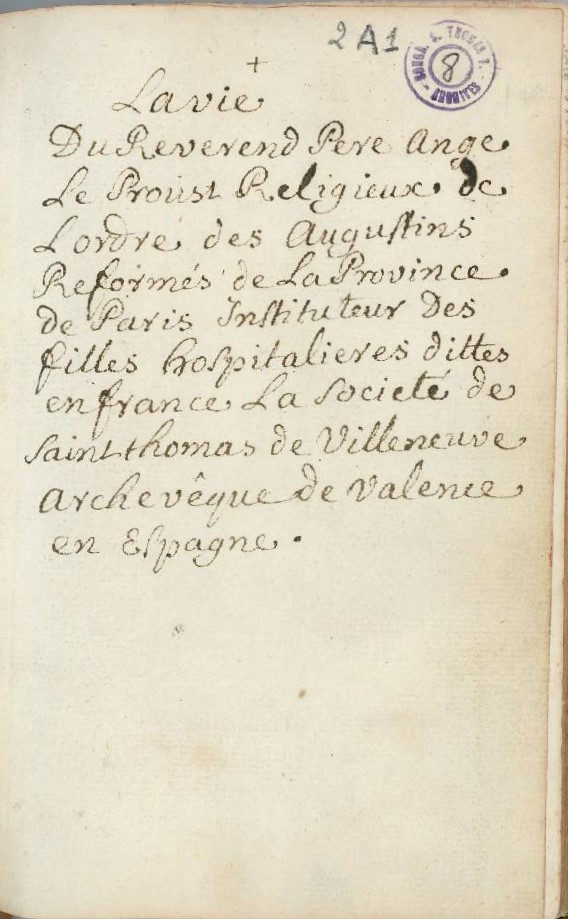 2A1
CONGR. S. THOMAS V. ARCHIVES
8
+
La vie
Du Reverend Pere Ange
Le Proust Religieux de
Lordre des Augustins
Reformés de La Province
de Paris Instituteur Des
filles hospitalieres dittes
en france La Societé de
Saint thomas de Villeneuve
Archevêque de Valence
en Espagne.